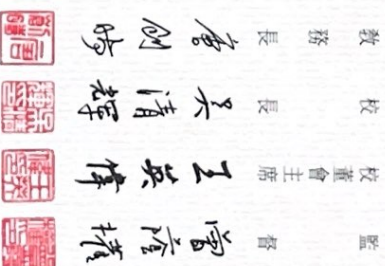 監督 曾蔭權
校董會主席 王英偉
校長 吳清輝
教務長 唐創時